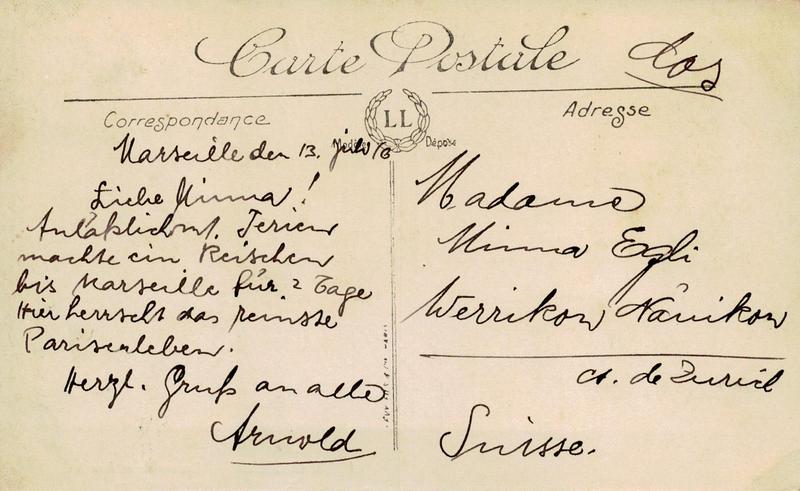 Carte Postale
Correspondance
Adresse
LL
Modèle Déposé
Marseille den 13. Juli
Liebe Minna!
Anläßlich m. Ferien
machte ein Reischen
bis Marseille für 2 Tage
Hier herrscht das reinste
Pariserleben.
Herzl. Gruß an alle
Arnold
Madame
Minna Egli
Werrikon Nänikon
Ct. de Zurich
Suisse.